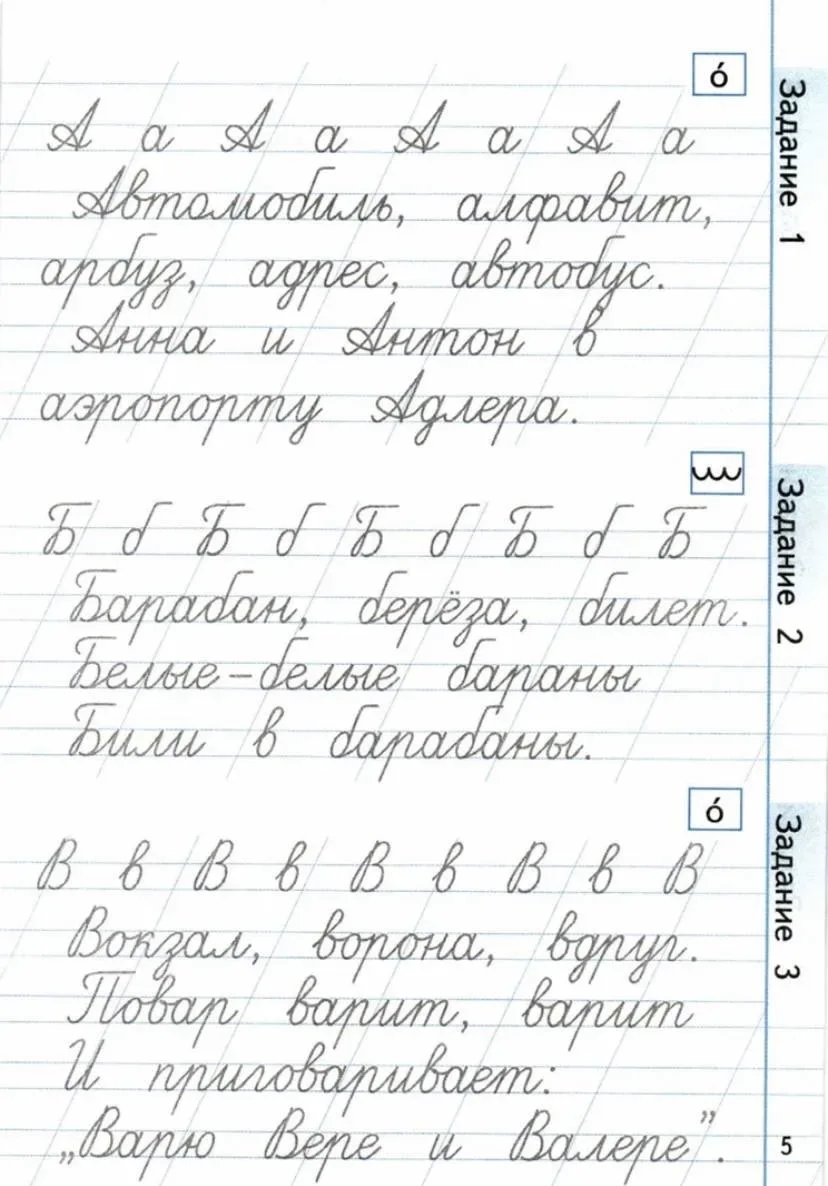 ó
Задание 1
А а А а А а А а
Автомобиль, алфавит,
арбуз, адрес, автобус.
Анна и Антон в
аэропорту Адлера.
Задание 2
Б б Б б Б б Б б Б
Барабан, берёза, билет.
Белые-белые бараны
Били в барабаны.
ó
Задание 3
В в В в В в В в В
Вокзал, ворона, вдруг.
Повар варит, варит
И приговаривает:
„Варю Вере и Валере”.
5